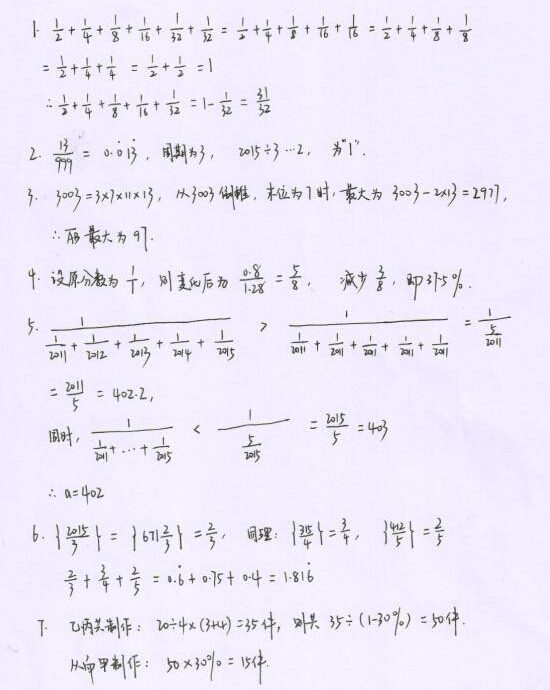 1. 1/2 + 1/4 + 1/8 + 1/16 + 1/32 + 1/32 = 1/2 + 1/4 + 1/8 + 1/16 + 1/16 = 1/2 + 1/4 + 1/8 + 1/8
= 1/2 + 1/4 + 1/4 = 1/2 + 1/2 = 1
∴ 1/2 + 1/4 + 1/8 + 1/16 + 1/32 = 1 - 1/32 = 31/32
2. 13/999 = 0.0̇13̇, 周期为3, 2015÷3…2, 为"1".
3. 3003 = 3×7×11×13, 从3003倒推, 末位为7时, 最大为 3003-2×13=2977,
∴ AB 最大为 97.
4. 设原分数为 1/1, 则变化后为 0.8/1.28 = 5/8, 减少 3/8, 即 37.5%.
5. 1/(1/2011 + 1/2012 + 1/2013 + 1/2014 + 1/2015) > 1/(1/2011 + 1/2011 + 1/2011 + 1/2011 + 1/2011) = 1/(5/2011)
= 2011/5 = 402.2,
同时, 1/(1/2011 + … + 1/2015) < 1/(5/2015) = 2015/5 = 403
∴ a=402
6. {2015/3} = {671 2/3} = 2/3, 同理: {315/4} = 3/4, {412/5} = 2/5
2/3 + 3/4 + 2/5 = 0.6̇ + 0.75 + 0.4 = 1.816̇
7. 乙丙共制作: 20÷4×(3+4)=35件, 则共 35÷(1-30%)=50件.
从而甲制作: 50×30% = 15件.